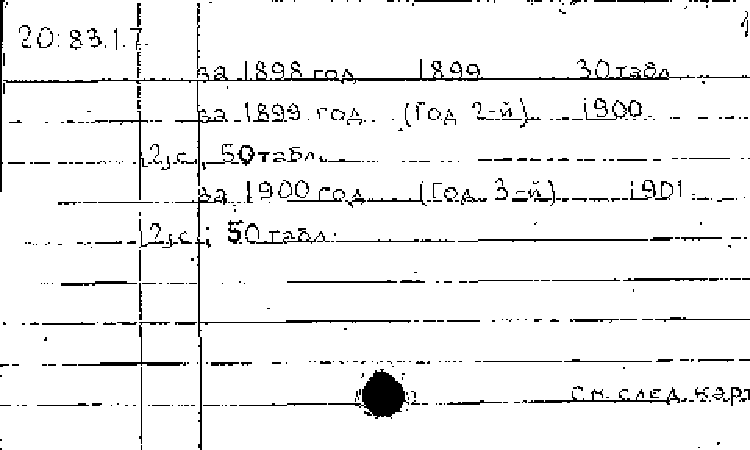 20.83.1.7
за 1898 год 1899 30 табл
за 1899 год (Год 2-й) 1900
2,с., 50 табл.
за 1900 год (Год 3-й) 1901
2,с.; 50 табл.
см. след. карт